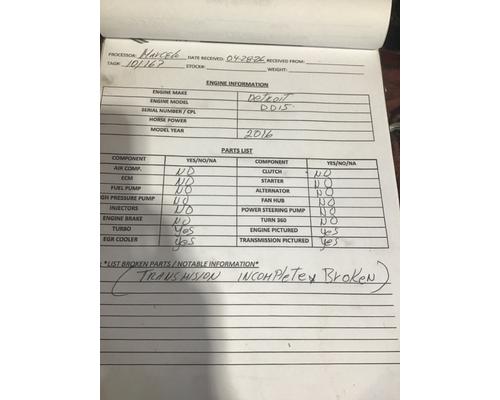 PROCESSOR: Marcelo DATE RECEIVED: 04-28-26 RECEIVED FROM:
TAG#: 101167 STOCK#: WEIGHT:
ENGINE INFORMATION
ENGINE MAKE Detroit
ENGINE MODEL DD15
SERIAL NUMBER / CPL
HORSE POWER
MODEL YEAR 2016
PARTS LIST
COMPONENT YES/NO/NA COMPONENT YES/NO/NA
AIR COMP. NO CLUTCH NO
ECM NO STARTER NO
FUEL PUMP NO ALTERNATOR NO
GH PRESSURE PUMP NO FAN HUB NO
INJECTORS NO POWER STEERING PUMP NO
ENGINE BRAKE NO TURN 360 NO
TURBO Yes ENGINE PICTURED Yes
EGR COOLER Yes TRANSMISSION PICTURED Yes
*LIST BROKEN PARTS / NOTABLE INFORMATION*
(TRANSMISION INCOMPLETE Y BROKEN)